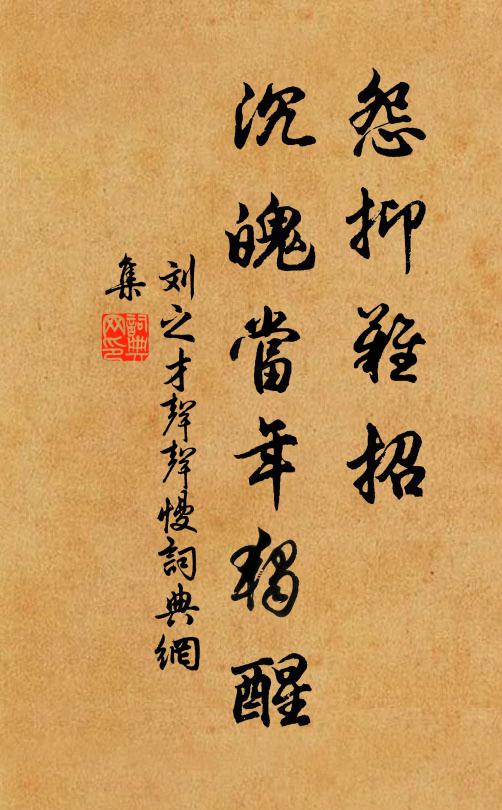 怨抑難招
沉魄當年獨醒
刘之才聲聲慢詞典網
集
詞典
网印